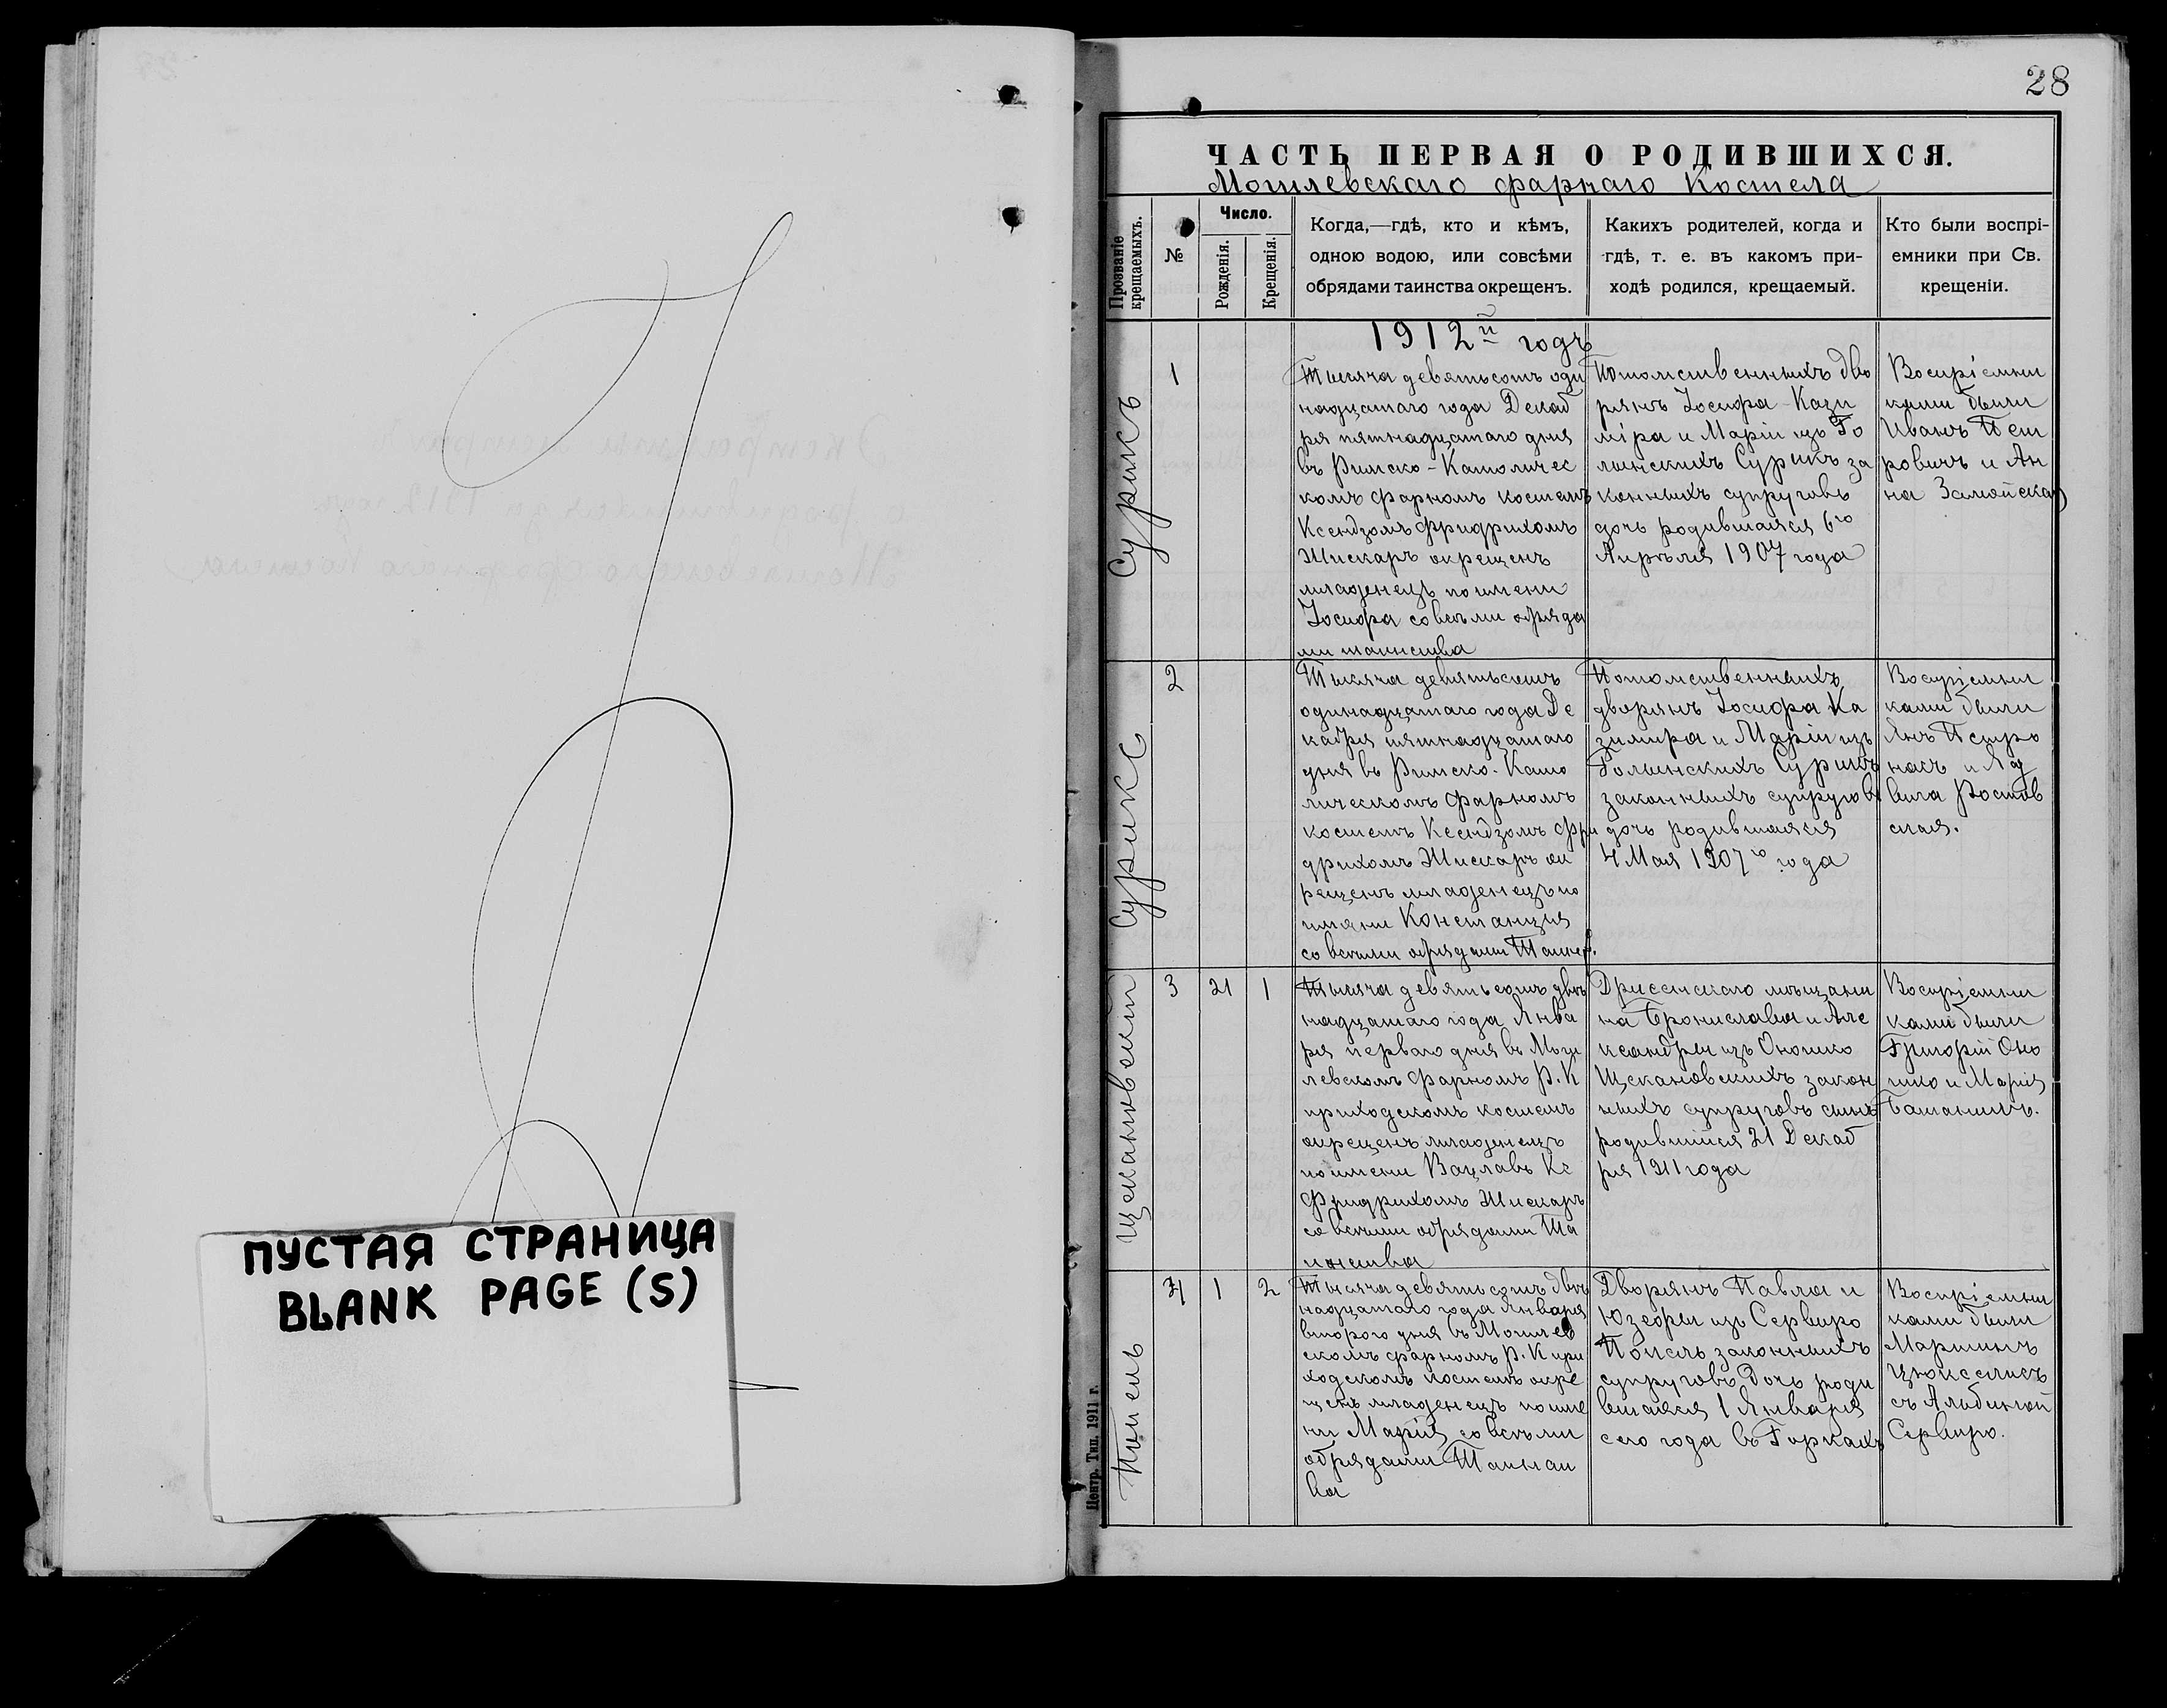 ПУСТАЯ СТРАНИЦА
BLANK PAGE (S)
28
ЧАСТЬ ПЕРВАЯ О РОДИВШИХСЯ.
Могилевскаго фарнаго Костела
Прозваніе
крещаемыхъ.
№
Число.
Рожденія.
Крещенія.
Когда,—гдѣ, кто и кѣмъ,
одною водою, или совсѣми
обрядами таинства окрещенъ.
Какихъ родителей, когда и
гдѣ, т. е. въ какомъ при-
ходѣ родился, крещаемый.
Кто были воспрі-
емники при Св.
крещеніи.
1912й годъ
Сурикъ
1
Тысяча девятьсотъ оди
надцатаго года Декаб
ря пятнадцатаго дня
въ Римско-Католичес
комъ фарномъ костелѣ
Ксендзомъ Фридрихомъ
Жискаръ окрещенъ
младенецъ по имени
Іосифа совсѣми обряда
ми таинства
Потомственныхъ дво
рянъ Іосифа-Кази
міра и Маріи изъ Го
лынскихъ Сурикъ за
конныхъ супруговъ
дочь родившаяся 6го
Апрѣля 1907 года
Воспріемни
ками были
Иванъ Пет
ровичъ и Ан
на Замойская
Сурикъ
2
Тысяча девятьсотъ
одинадцатаго года Де
кабря пятнадцатаго
дня въ Римско-Като
лическомъ фарномъ
костелѣ Ксендзомъ Фри
дрихомъ Жискаръ ок
рещенъ младенецъ по
имени Констанція
со всѣми обрядами Таинст.
Потомственныхъ
дворянъ Іосифа Ка
зимира и Маріи изъ
Голынскихъ Сурикъ
законныхъ супруговъ
дочь родившаяся
4 Мая 1907го года
Воспріемни
ками были
Янъ Петро
и Яд
вига
Щекановскій
3
21
1
Тысяча девятьсотъ двѣ
надцатаго года Янва
ря перваго дня въ Моги
левскомъ фарномъ Р. К
приходскомъ костелѣ
окрещенъ младенецъ
по имени Вацлавъ Кс
Фридрихомъ Жискаръ
со всѣми обрядами Та
инства
Дриссенскаго мѣщани
на Бронислава и Але
ксандры изъ Оношко
Щекановскихъ закон
ныхъ супруговъ сынъ
родившійся 21 Декаб
ря 1911 года
Воспріемни
ками были
Григорій Оно
шко и Марія
Попель
4
1
2
Тысяча девятьсотъ двѣ
надцатаго года Января
втораго дня въ Могилев
скомъ фарномъ Р. К при
ходскомъ костелѣ окре
щенъ младенецъ по име
ни Марія со всѣми
обрядами Таинст
ва
Дворянъ Павла и
Юзефы изъ Сервиро
Попель законныхъ
супруговъ дочь роди
вшаяся 1 Января
сего года въ Горкахъ
Воспріемни
ками были
Мартинъ
съ Альбиной
Сервиро.
Центр. Тип. 1911 г.